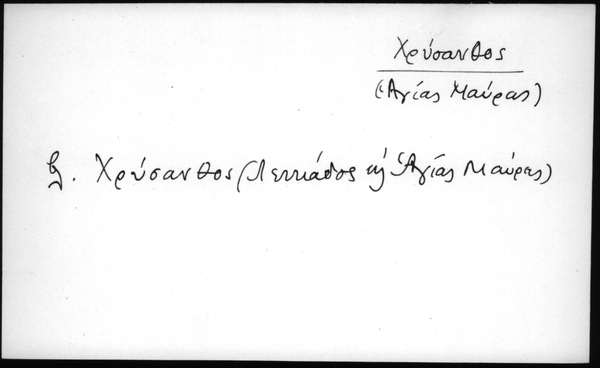 Χρύσανθος
(Ἁγίας Μαύρας)
βλ. Χρύσανθος (Λευκάδος καὶ Ἁγίας Μαύρας)